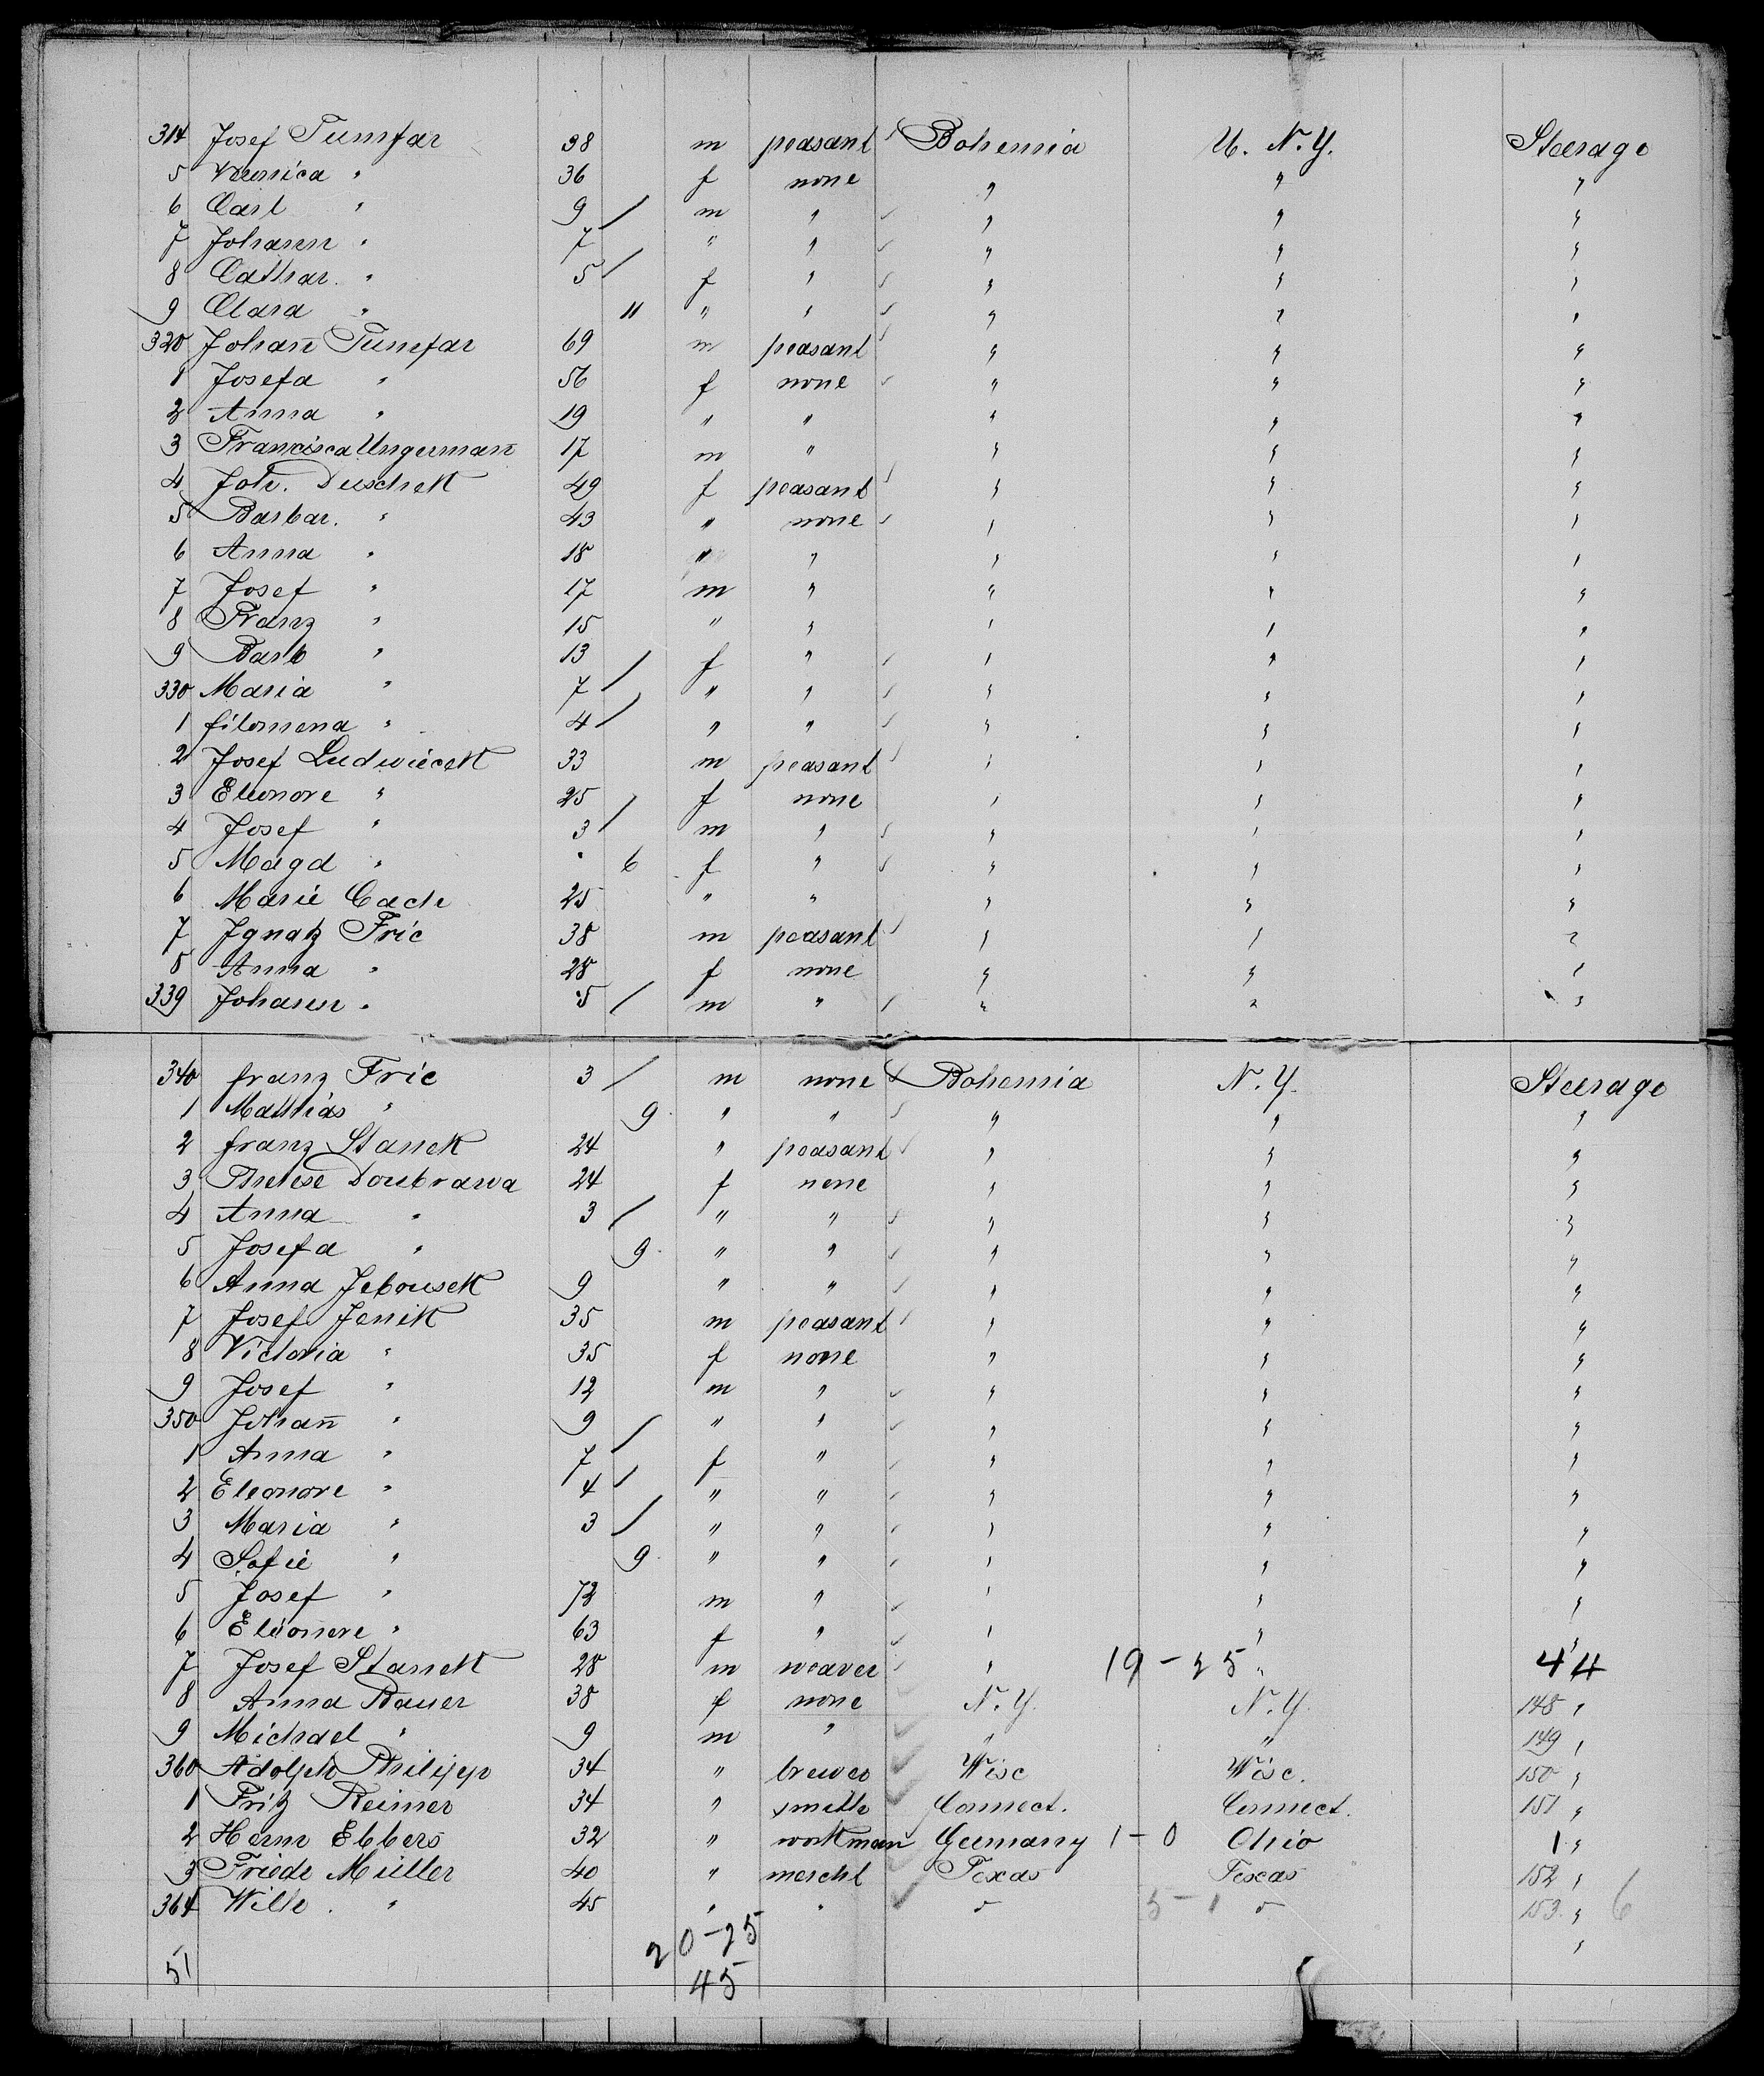 314 Josef Tumfar 38 m peasant Bohemia U. N.Y. Steerage
5 Veronica " 36 f none " " "
6 Carl " 9 / m " " " "
7 Johann " 7 " " " " "
8 Cathar. " 5 / f " " " "
9 Clara " 11 " " " " "
320 Johan̄ Tumfar 69 m peasant " " "
1 Josefa " 56 f none " " "
2 Anna " 19 " " " " "
3 Francisca Ungerman̄ 17 m " " " "
4 Joh. Duschek 49 f peasant " " "
5 Barbar. " 43 " none " " "
6 Anna " 18 " " " " "
7 Josef " 17 m " " " "
8 Franz " 15 " " " " "
9 Barb " 13 / f " " " "
330 Maria " 7 / " " " " "
1 filomena " 4 / " " " " "
2 Josef Ludwiecek 33 m peasant " " "
3 Eleonore " 25 f none " " "
4 Josef " 3 / m " " " "
5 Magd " 6 f " " " "
6 Marie Cach 25 " " " " "
7 Ignatz Fric 38 m peasant " " "
8 Anna " 28 f none " " "
339 Johann " 5 / m " " " "
340 franz Fric 3 / m none Bohemia N.Y. Steerage
1 Mathias " 9 " " " " "
2 franz Stanek 24 " peasant " " "
3 Therese Doubrawa 24 f none " " "
4 Anna " 3 / " " " " "
5 Josefa " 9 " " " " "
6 Anna Jebousek 9 " " " " "
7 Josef Jenik 35 m peasant " " "
8 Victoria " 35 f none " " "
9 Josef " 12 m " " " "
350 Johan̄ " 9 / " " " " "
1 Anna " 7 / f " " " "
2 Eleonore " 4 / " " " " "
3 Maria " 3 / " " " " "
4 Sofie " 9 " " " " "
5 Josef " 72 m " " " "
6 Eleonore " 63 f " " " "
7 Josef Stanek 28 m weaver " 19-25 " 44
8 Anna Bauer 38 f none N.Y. N.Y. 148 "
9 Michael " 9 m " " " 149 "
360 Adolph Philipp 34 " brewer Wisc Wisc. 150 "
1 Fritz Reimer 34 " smith Connect. Connect. 151 "
2 Herm Ebbers 32 " workman Germany 1-0 Ohio 1 "
3 Friedr Müller 40 " mercht Texas Texas 152 "
364 Wilh. " 45 " " " 5-1 " 153 " 6
20-25
51 45